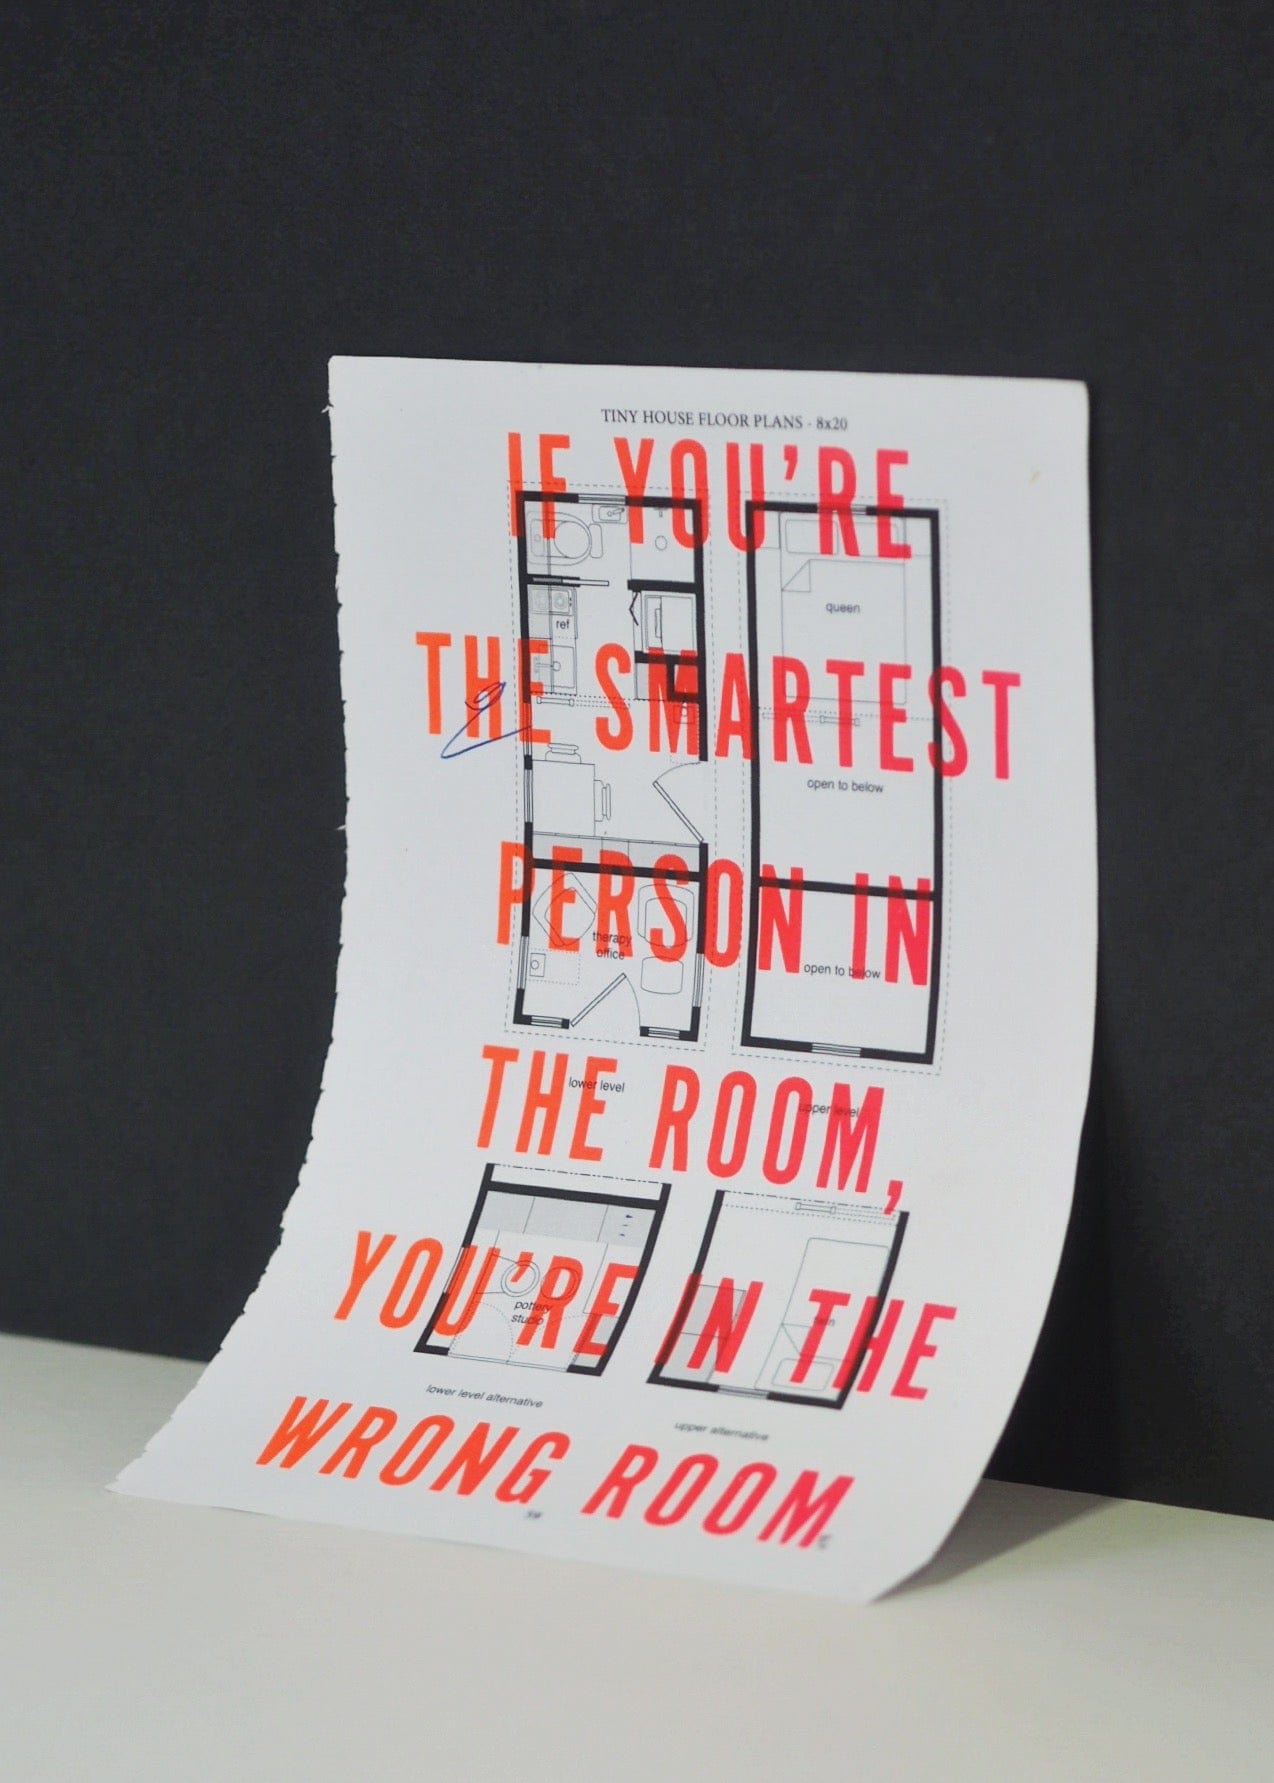 TINY HOUSE FLOOR PLANS - 8x20
IF YOU'RE
THE SMARTEST
PERSON IN
THE ROOM,
YOU'RE IN THE
WRONG ROOM
ref
queen
open to below
therapy
office
open to below
lower level
upper level
pottery
studio
twin
lower level alternative
upper alternative